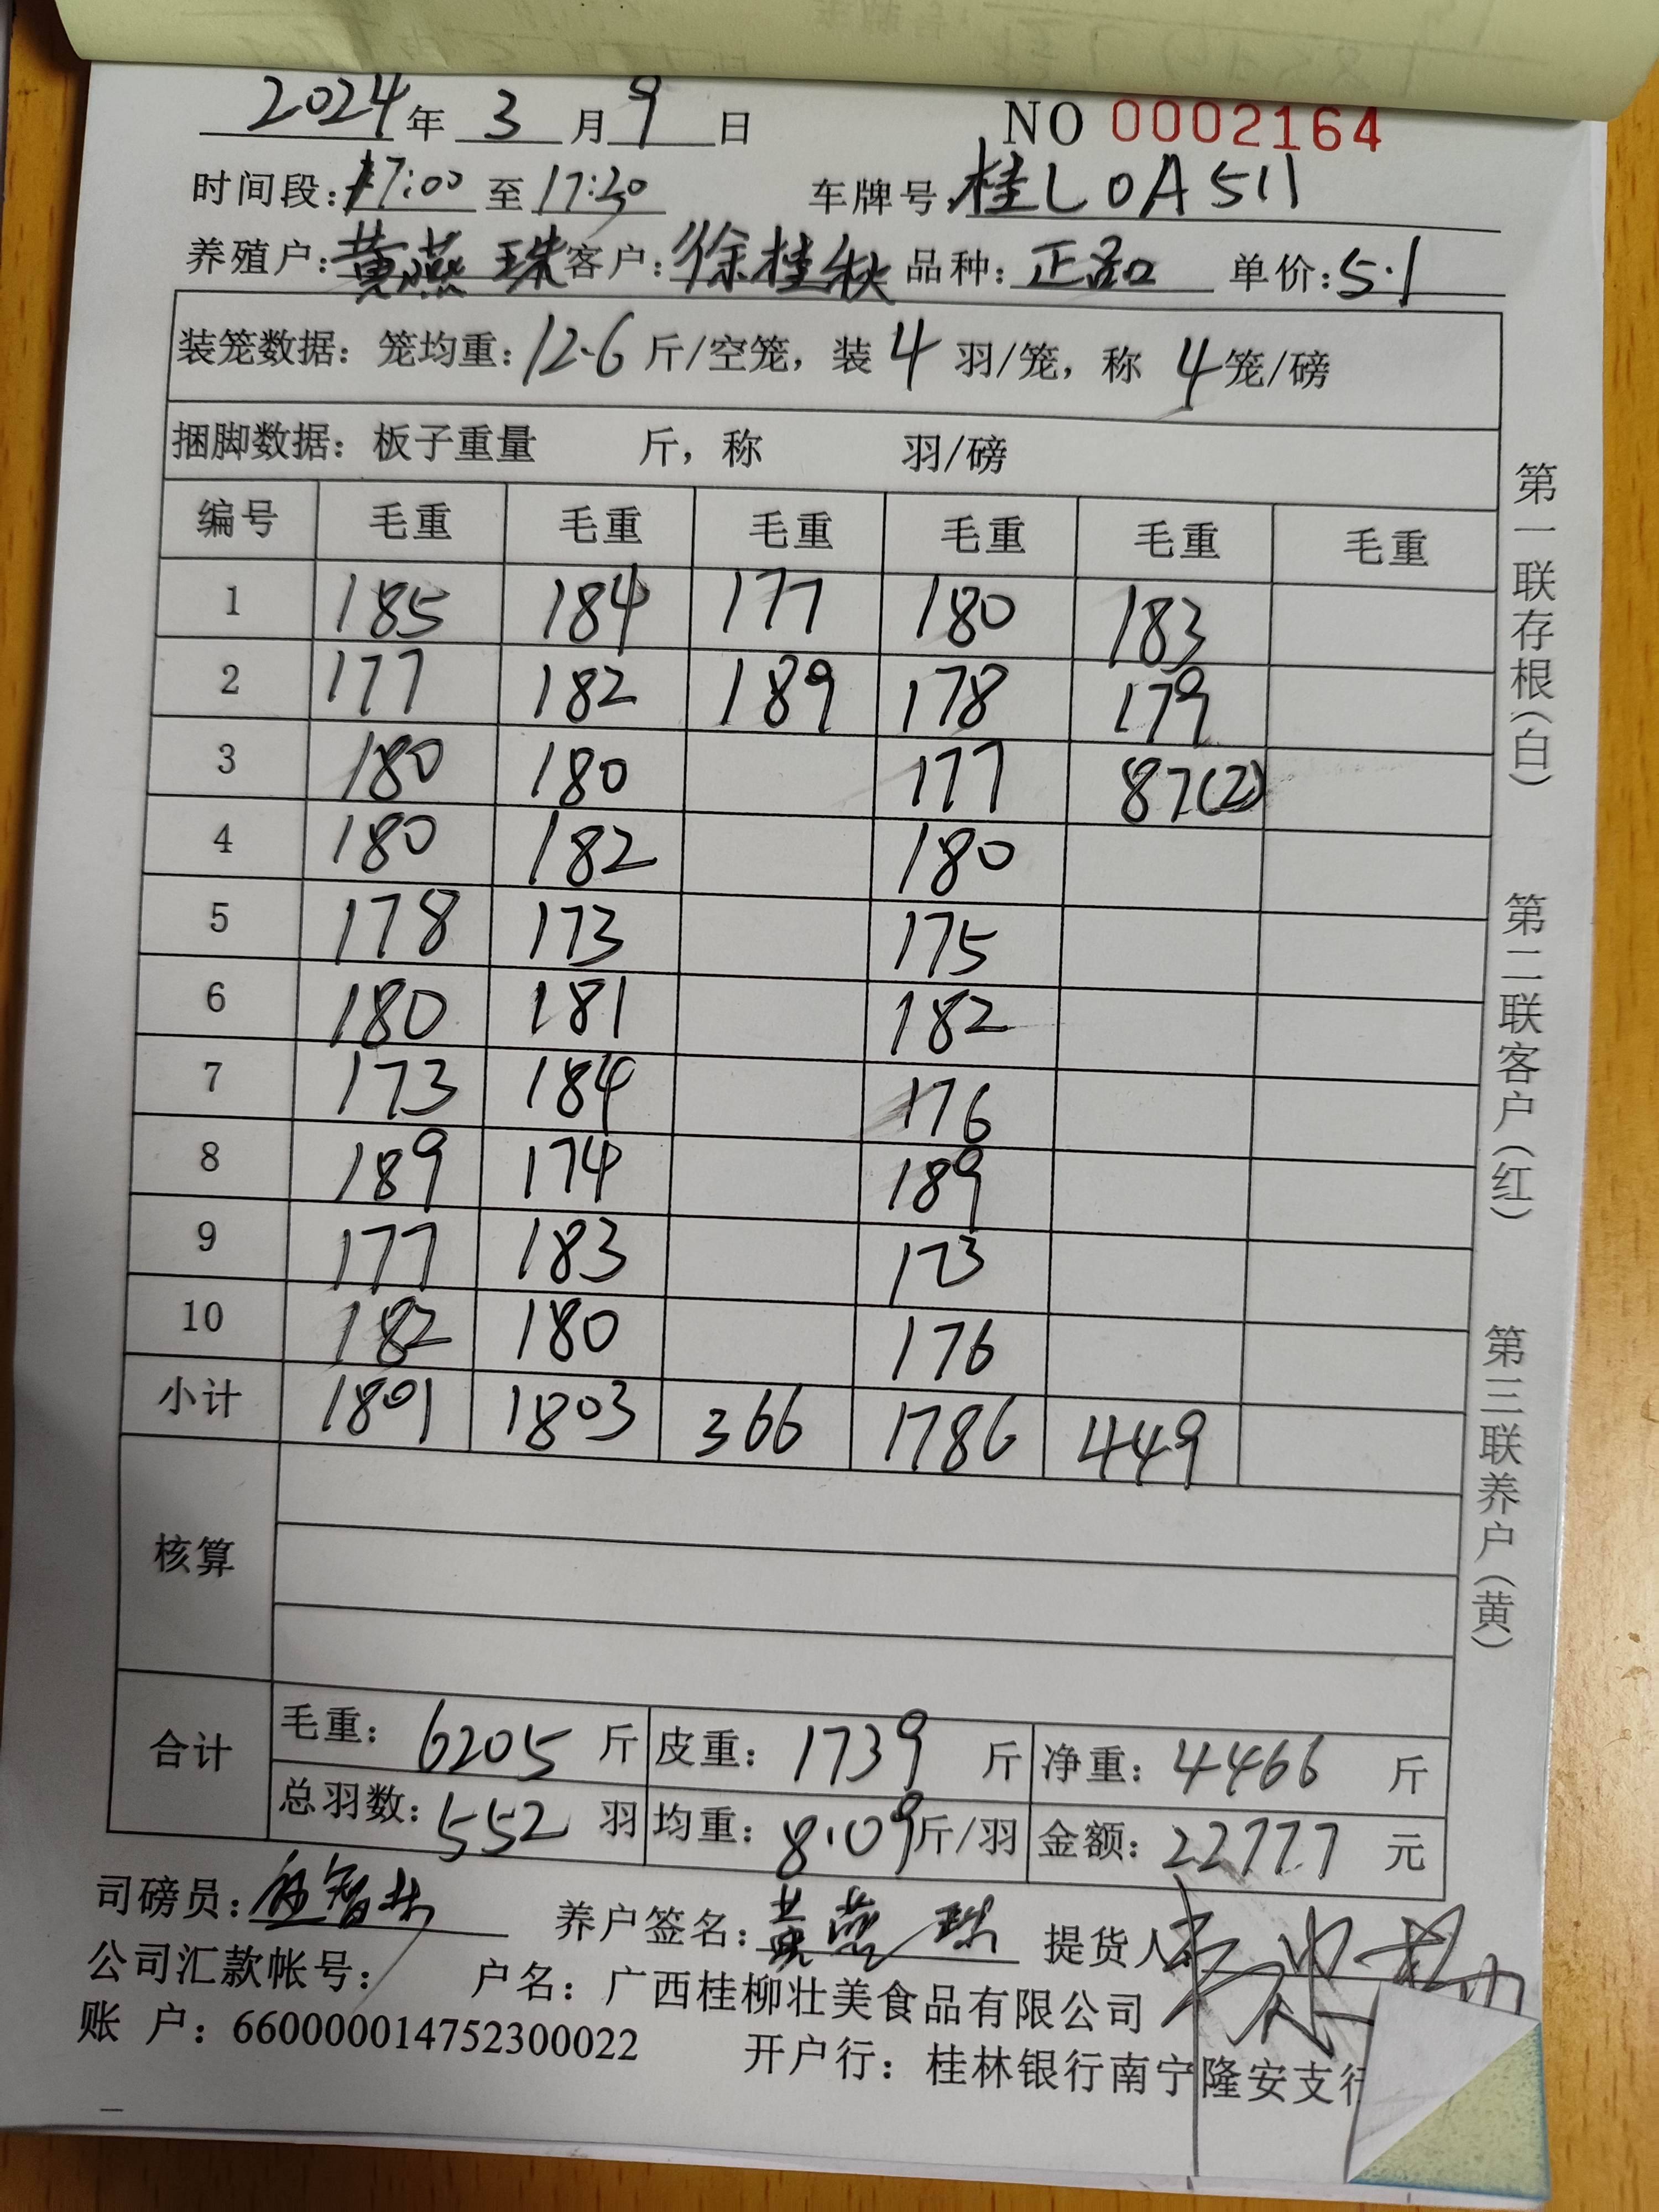 2024年 3月 9日 NO 0002164
时间段:17:00 至 17:30 车牌号:桂L0A511
养殖户:黄燕珠 客户:徐桂秋 品种:正品 单价:5.1
装笼数据: 笼均重:12.6斤/空笼, 装4羽/笼, 称4笼/磅
捆脚数据: 板子重量 斤, 称 羽/磅
编号 毛重 毛重 毛重 毛重 毛重 毛重
1 185 184 177 180 183
2 177 182 189 178 179
3 180 180 177 87(2)
4 180 182 180
5 178 173 175
6 180 181 182
7 173 184 176
8 189 174 189
9 177 183 173
10 182 180 176
小计 1801 1803 366 1786 449
核算
合计 毛重: 6205 斤 皮重: 1739 斤 净重: 4466 斤
总羽数: 552 羽 均重: 8.09斤/羽 金额: 22777 元
司磅员: 养户签名:黄燕珠 提货人
公司汇款帐号: 户名: 广西桂柳壮美食品有限公司
账 户: 660000014752300022 开户行: 桂林银行南宁隆安支行
第一联存根(白) 第二联客户(红) 第三联养户(黄)